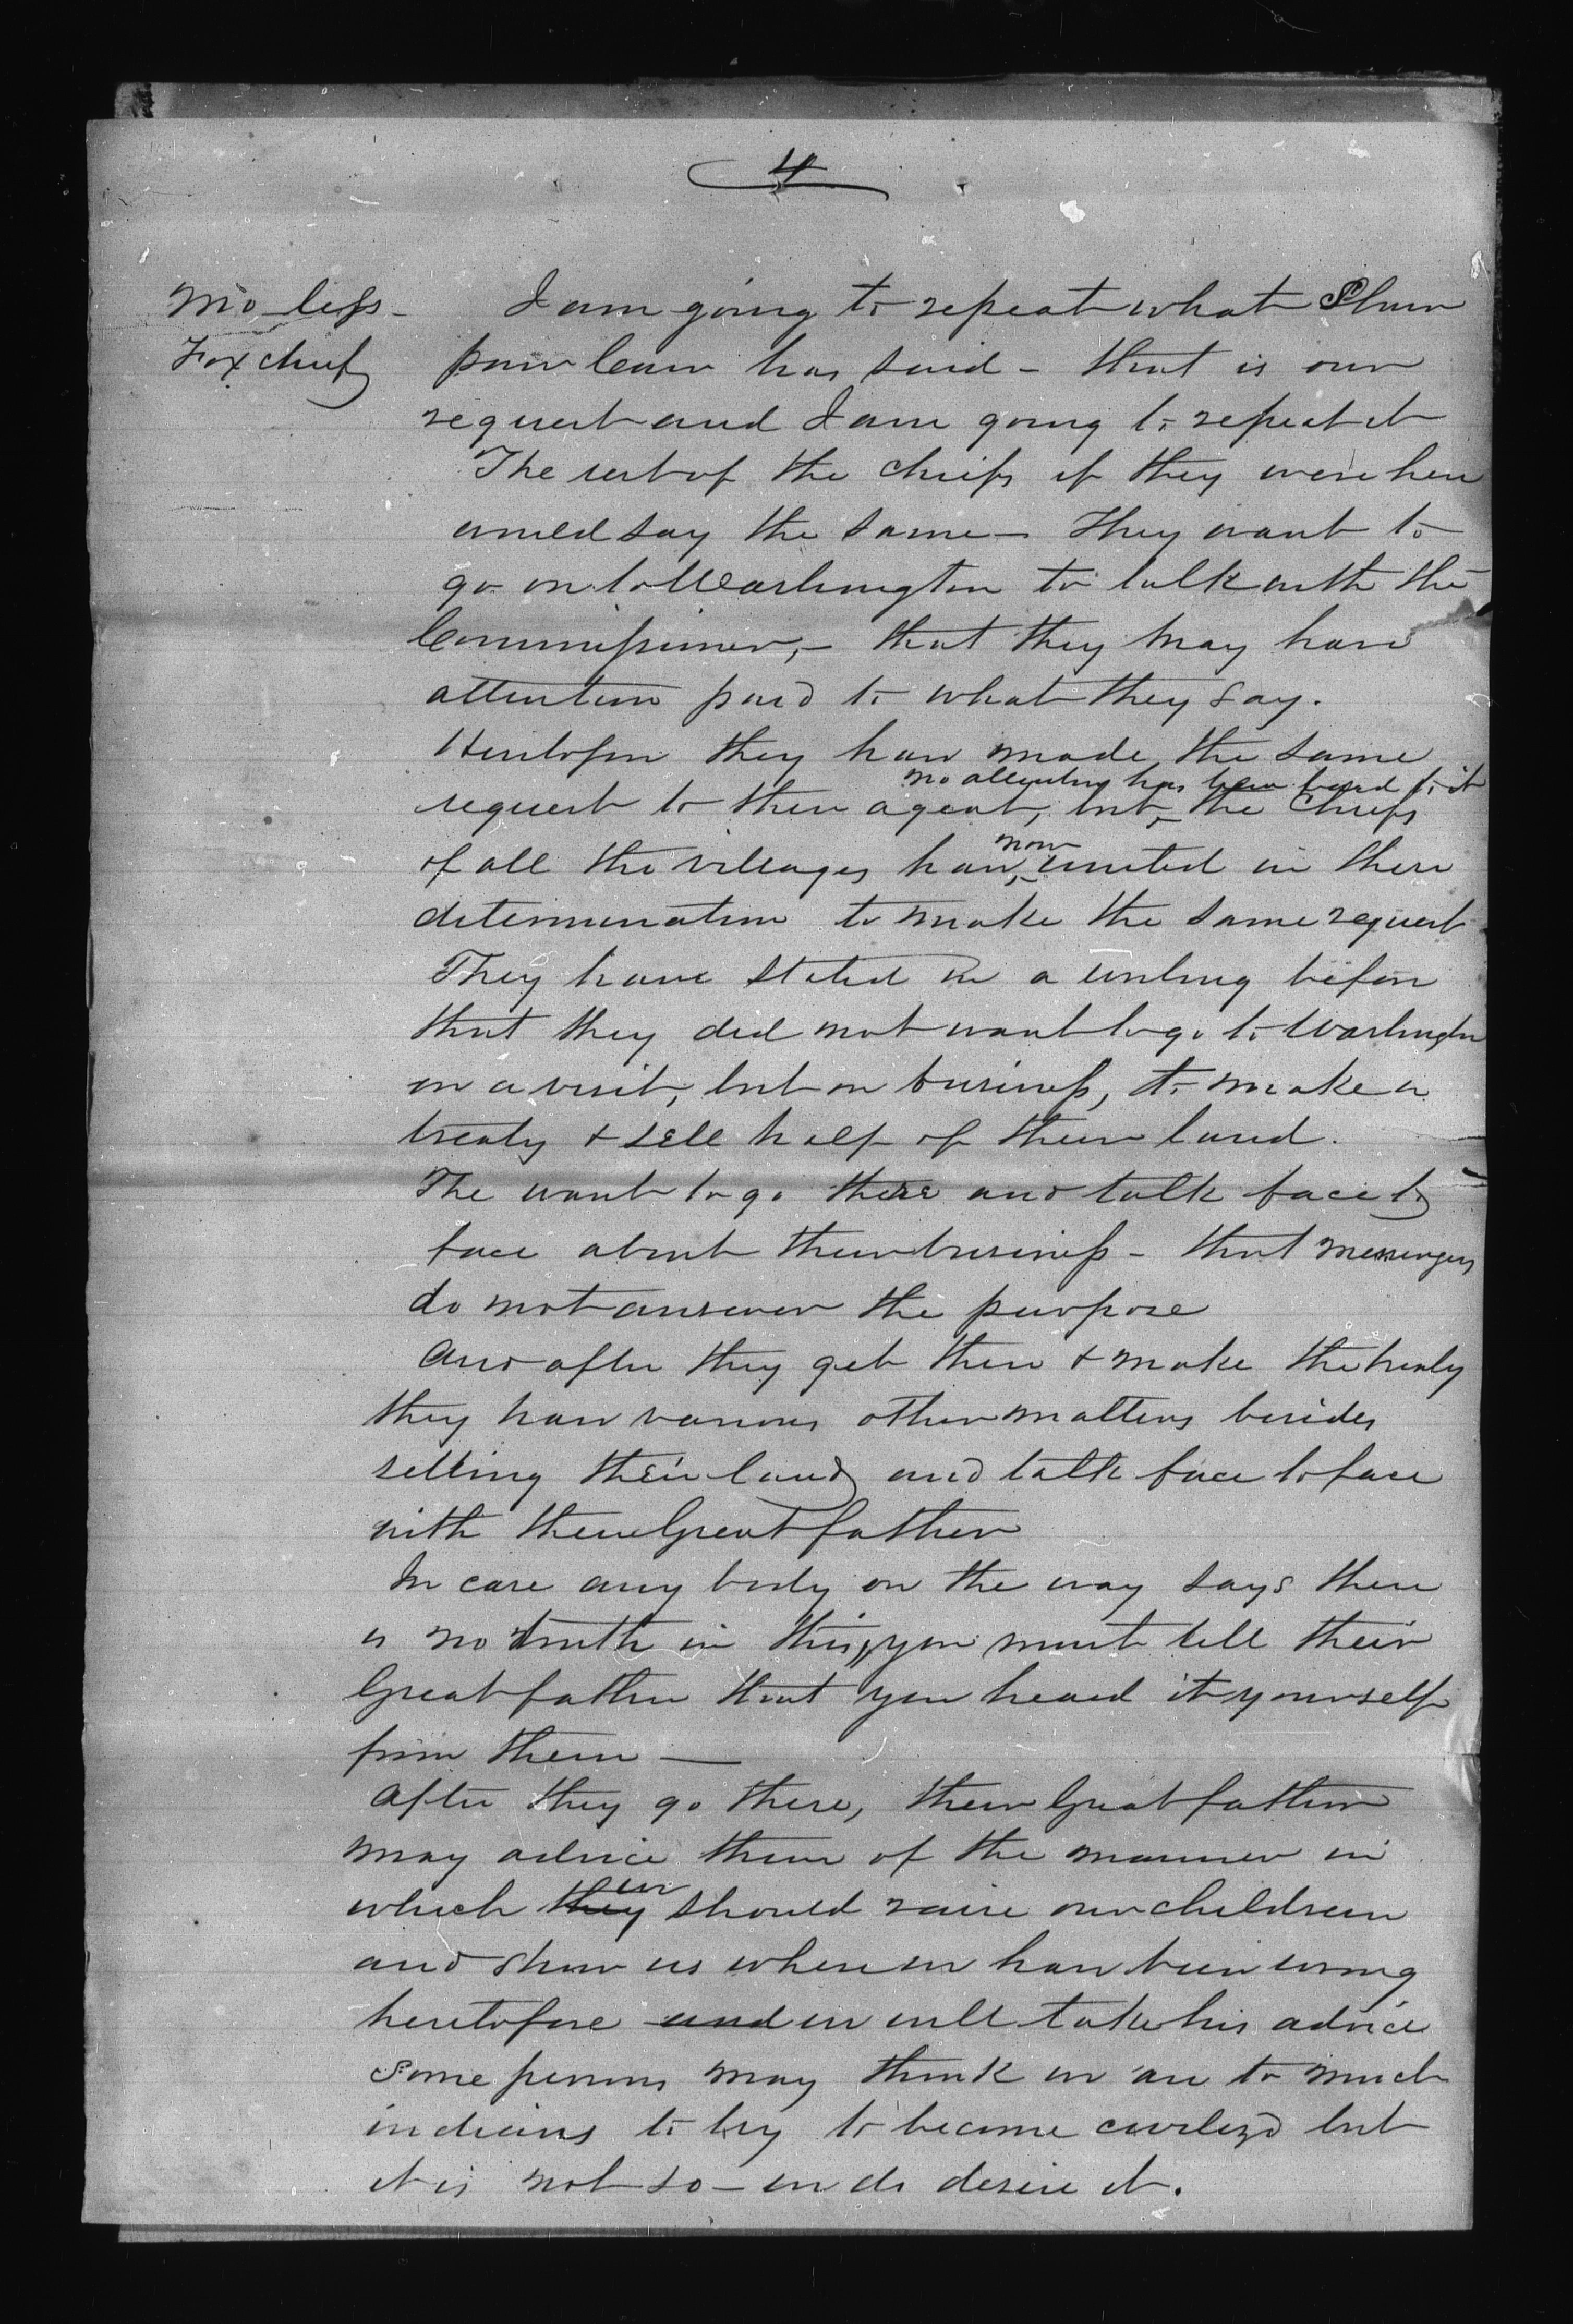 4
Mo less -
Fox chief
I am going to repeat what Shaw
paw caw has said - that is our
request and I am going to repeat it
The rest of the chiefs if they were here
would say the same - They want to
go on to Washington to talk with the
Commissioner, - that they may have
attention paid to what they say.
Heretofore they have made the same
no attention has been paid to it
request to their agent, but the Chiefs
now
of all the villages have united in their
determination to make the same request
They have stated in a writing before
that they did not want to go to Washington
on a visit, but on business, to make a
treaty & sell half of their land.
The want to go there and talk face to
face about their business - that messengers
do not answer the purpose
And after they get there & make the treaty
they have various other matters besides
selling their land and talk face to face
with their Great father
In case any body on the way says there
is no truth in this, you must tell their
Great father that you heard it yourself
from them —
After they go there, their Great father
may advice them of the manner in
we
which they should raise our children
and show us where we have been wrong
heretofore and we will take his advice
Some persons may think we are to much
indians to try to become civilezd but
it is not so - we do desire it.